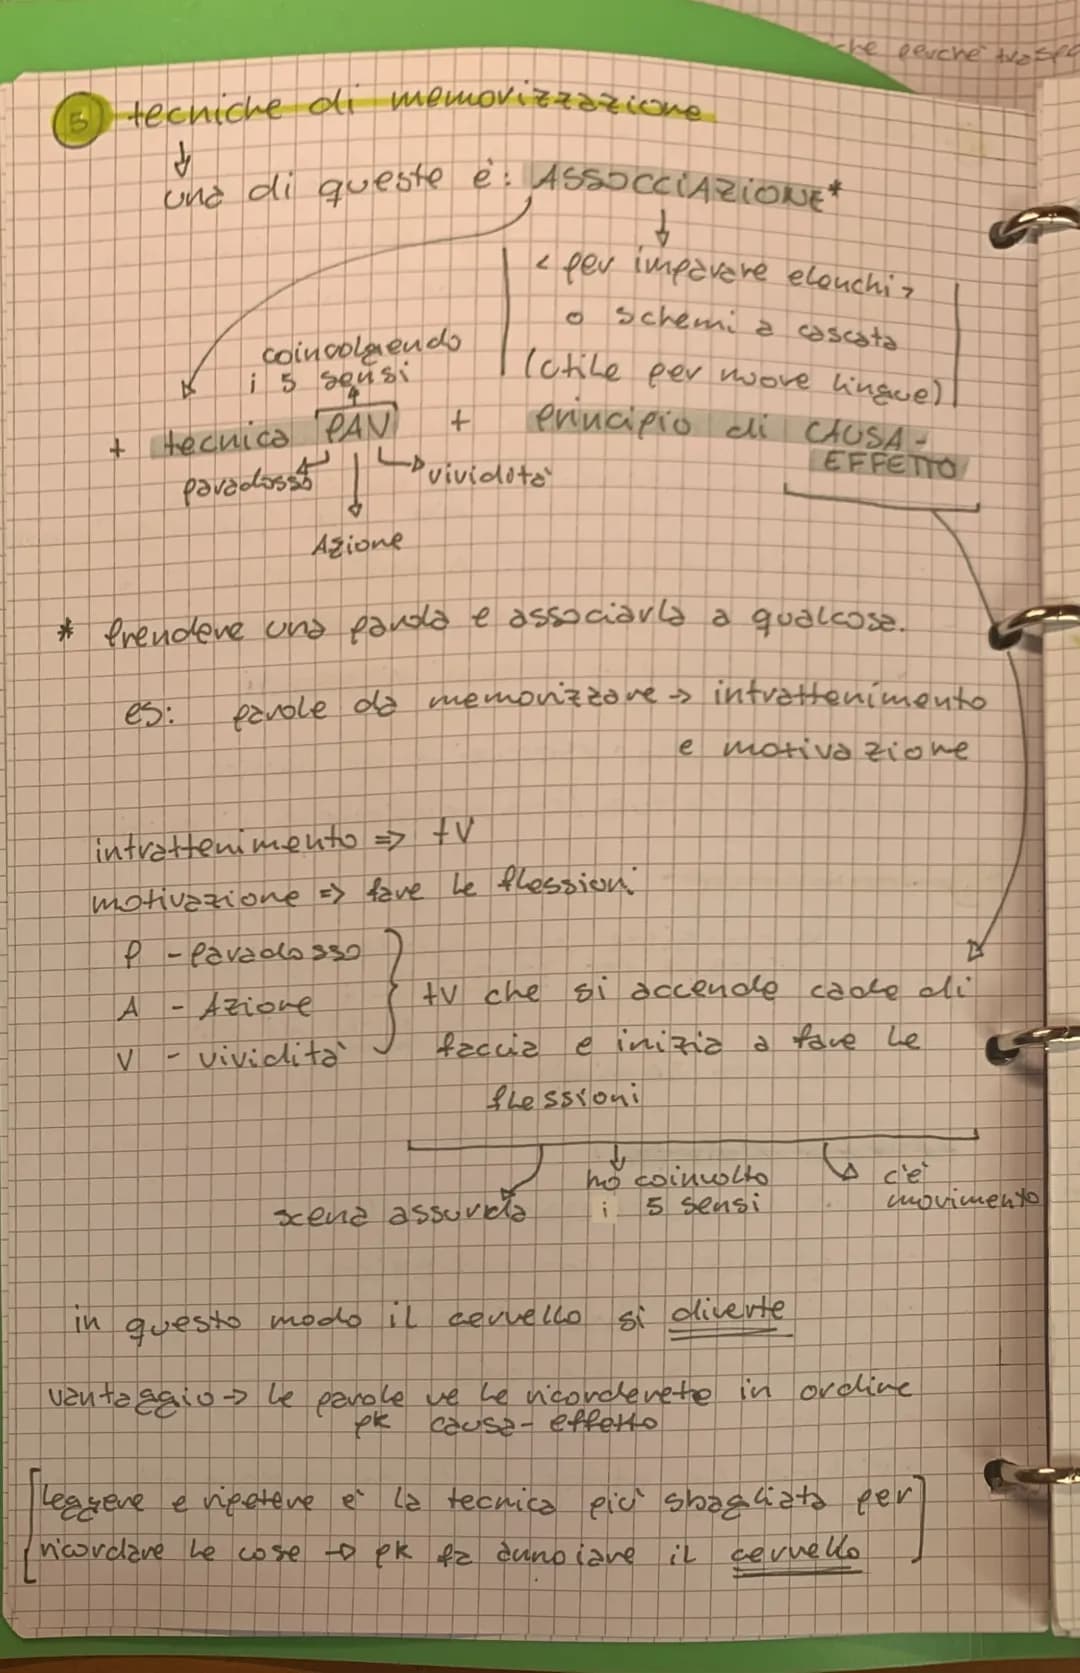 che perché
5 tecniche di memorizzazione
una di queste è: ASSOCCIAZIONE*
< per imparare elenchi >
o schemi a cascata
(utile per nuove lingue)
coinvolgendo
i 5 sensi
+ tecnica PAV + principio di CAUSA-
EFFETTO
paradosso vividità
Azione
* Prendere una parola e associarla a qualcosa.
es: parole da memorizzare → intrattenimento
e motivazione
intrattenimento => tV
motivazione => fare le flessioni
P - Paradosso
A - Azione
V - vividità
tV che si accende cade di
faccia e inizia a fare le
flessioni
scena assurda
ho coinvolto
i 5 sensi
c'è
movimento
in questo modo il cervello si diverte
vantaggio → le parole ve le ricorderete in ordine
pk causa-effetto
[leggere e ripetere è la tecnica più sbagliata per
ricordare le cose → pk fa annoiare il cervello]